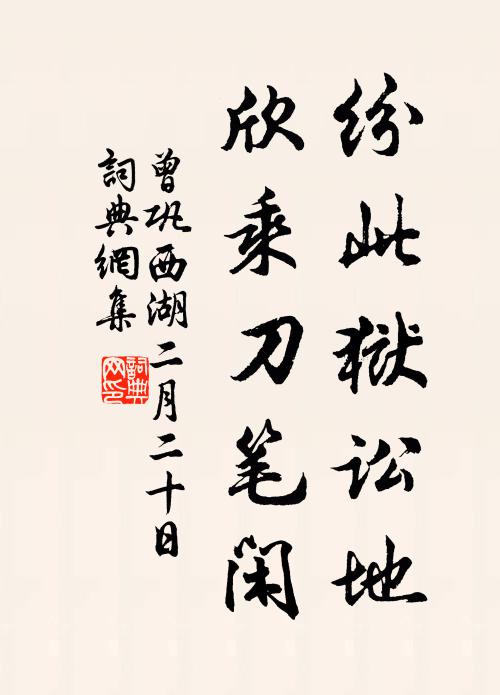 纷此狱讼地
欣乘刀笔闲
曾巩西湖二月二十日
詞典網集
詞典網印